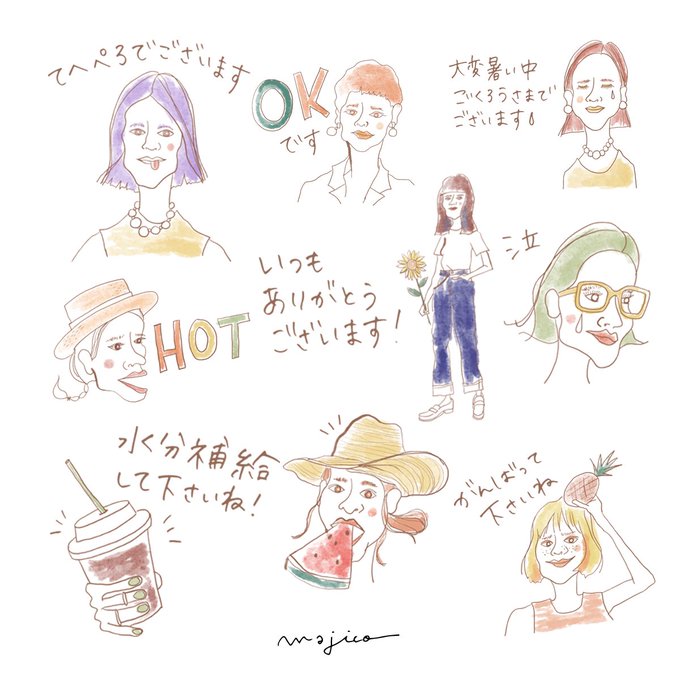 てへぺろでございます
OK
です
大変暑い中
ごくろうさまで
ございます
いつも
ありがとう
ございます!
泣
HOT
水分補給
して下さいね!
がんばって
下さいね
majico